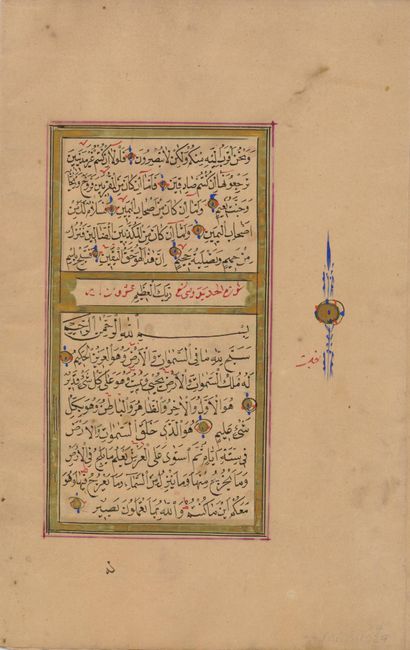 وَنَحْنُ اَقْرَبُ اِلَيْهِ مِنْكُمْ وَلٰكِنْ لَا تُبْصِرُونَ فَلَوْلَا اِنْ كُنْتُمْ غَيْرَ مَدِينِينَ
تَرْجِعُونَهَا اِنْ كُنْتُمْ صَادِقِينَ فَاَمَّا اِنْ كَانَ مِنَ الْمُقَرَّبِينَ فَرَوْحٌ وَرَيْحَانٌ
وَجَنَّتُ نَعِيمٍ وَاَمَّا اِنْ كَانَ مِنْ اَصْحَابِ الْيَمِينِ فَسَلَامٌ لَكَ مِنْ
اَصْحَابِ الْيَمِينِ وَاَمَّا اِنْ كَانَ مِنَ الْمُكَذِّبِينَ الضَّالِّينَ فَنُزُلٌ
مِنْ حَمِيمٍ وَتَصْلِيَةُ جَحِيمٍ اِنَّ هٰذَا لَهُوَ حَقُّ الْيَقِينِ فَسَبِّحْ بِاسْمِ
رَبِّكَ الْعَظِيمِ
بِسْمِ اللّٰهِ الرَّحْمٰنِ الرَّحِيمِ
سَبَّحَ لِلّٰهِ مَا فِي السَّمٰوَاتِ وَالْاَرْضِ وَهُوَ الْعَزِيزُ الْحَكِيمُ
لَهُ مُلْكُ السَّمٰوَاتِ وَالْاَرْضِ يُحْيِي وَيُمِيتُ وَهُوَ عَلٰى كُلِّ شَيْءٍ قَدِيرٌ
هُوَ الْاَوَّلُ وَالْاٰخِرُ وَالظَّاهِرُ وَالْبَاطِنُ وَهُوَ بِكُلِّ
شَيْءٍ عَلِيمٌ هُوَ الَّذِي خَلَقَ السَّمٰوَاتِ وَالْاَرْضَ
فِي سِتَّةِ اَيَّامٍ ثُمَّ اسْتَوٰى عَلَى الْعَرْشِ يَعْلَمُ مَا يَلِجُ فِي الْاَرْضِ
وَمَا يَخْرُجُ مِنْهَا وَمَا يَنْزِلُ مِنَ السَّمَاءِ وَمَا يَعْرُجُ فِيهَا وَهُوَ
مَعَكُمْ اَيْنَ مَا كُنْتُمْ وَاللّٰهُ بِمَا تَعْمَلُونَ بَصِيرٌ